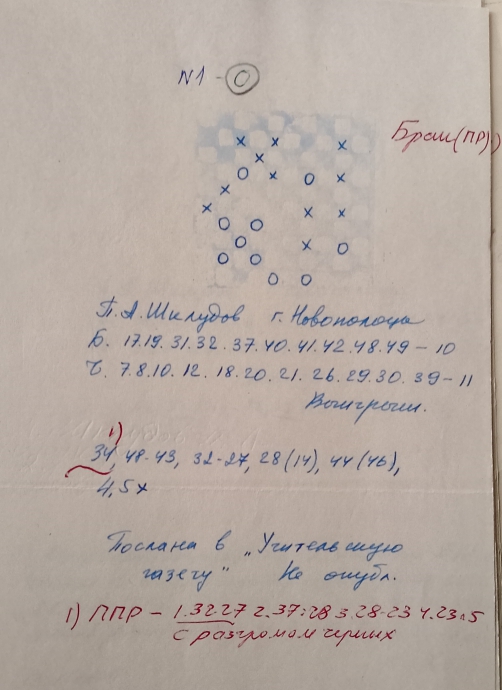 N1 - 0
Брак (ПР).
П.А. Шклудов г. Новополоцк
Б. 17.19.31.32.37.40.41.42.48.49 - 10
Ч. 7.8.10.12.18.20.21.26.29.30.39 - 11
Выигрыш.
1)
34, 48-43, 32-27, 28(14), 44(46),
4, 5x
Послана в „Учительскую
газету" Не опубл.
1) ППР - 1.32-27 2.37:28 3.28-23 4.23х5
с разгромом черных